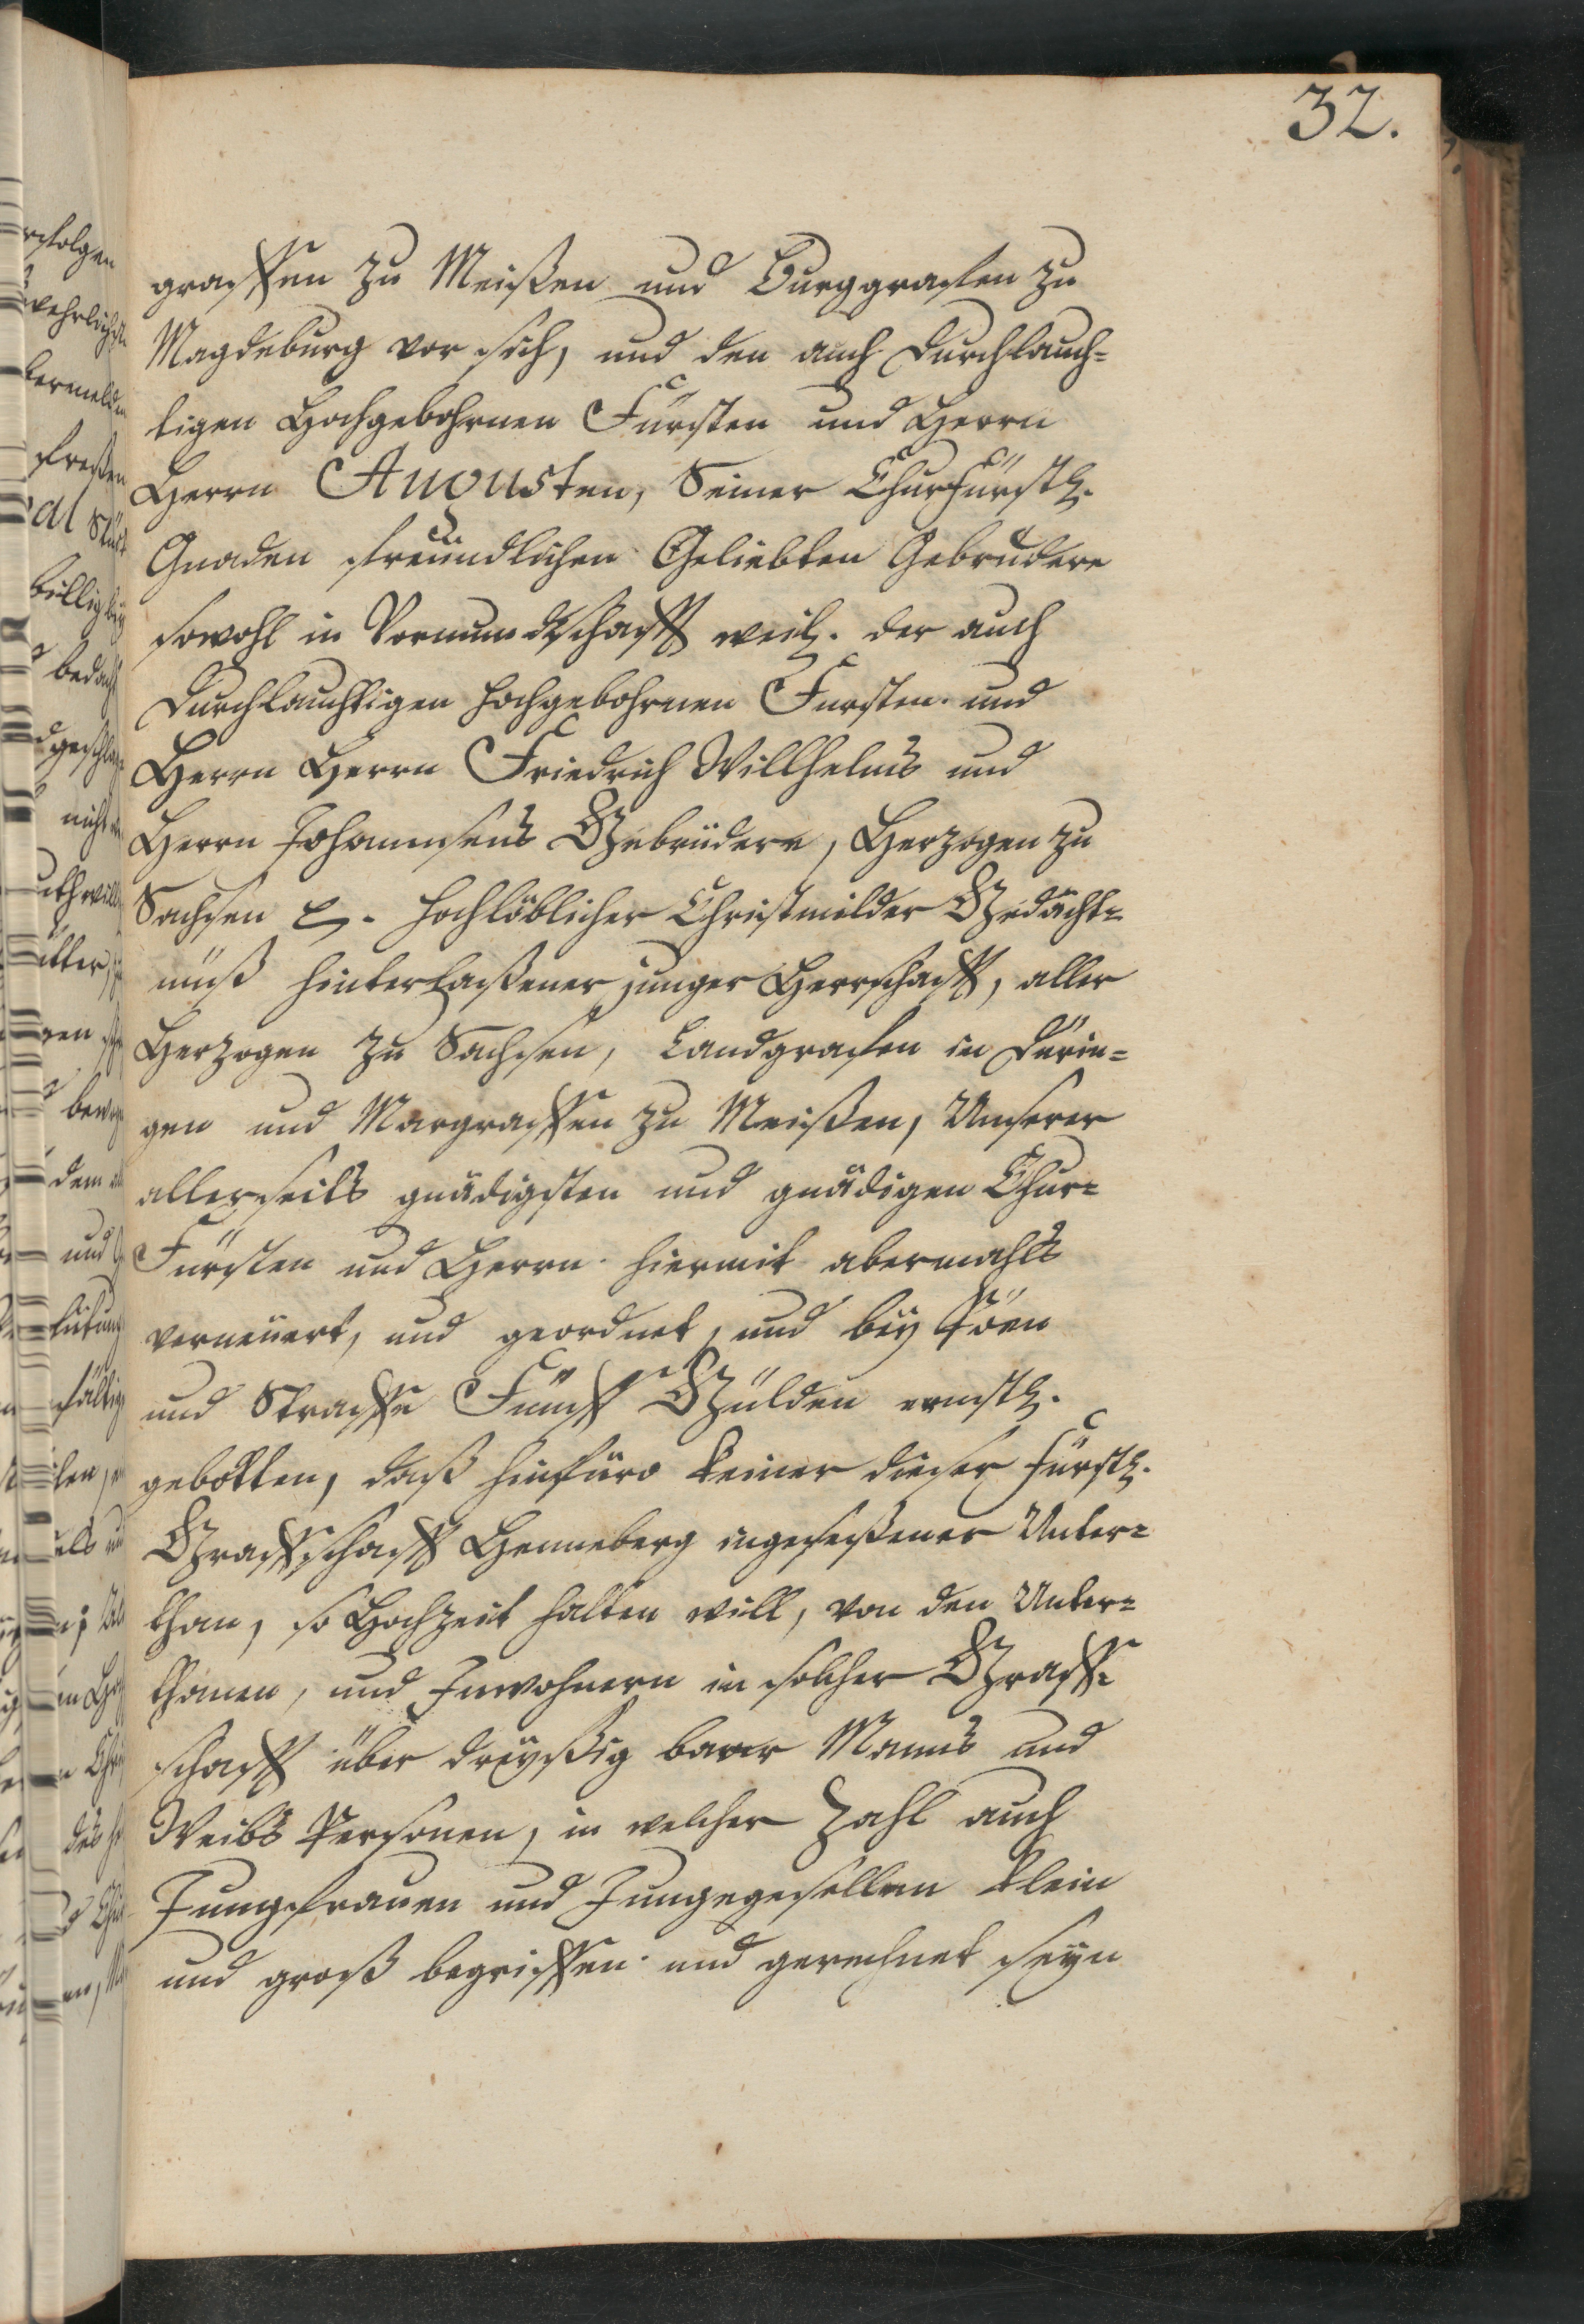 32.
graffen zu Meißen und Burggrafen zu
Magdeburg vor sich, und den auch Durchlauch=
tigen Hochgebohrnen Fürsten und Herrn
Herrn Augusten, Seiner Churfürstl.
Gnaden freündlichen Geliebten Gebrudere
sowohl in Vormundtschafft weil. der auch
Durchlauchtigen hochgebohrnen Fursten und
Herrn Herrn Friedrich Willhelms und
Herrn Johannsens Gebrüdere, Herzogen zu
Sachsen p. hochlöblicher Christmilder Gedächt=
nüß hinterlaßener junger Herrschafft, aller
Herzogen zu Sachsen, Landgrafen in Dürin=
gen und Margraffen zu Meißen, Unserer
allerseits gnädigsten und gnädigen Chur=
Fürsten und Herrn hiermit abermahls
verneüert, und geordnet, und beÿ Pöen
und Straffe Fünff Gülden ernstl.
gebotten, daß hinfüro keiner dieser Fürstl.
Graffschafft Henneberg ingeseßener Unter=
than, so Hochzeit halten will, von den Unter=
thanen, und Inwohnern in solcher Graff=
schafft über dreÿßig baar Manns und
Weibs Personen, in welcher Zahl auch
Jungfrauen und Jungegesellen klein
und groß begriffen und gerechnet seyn